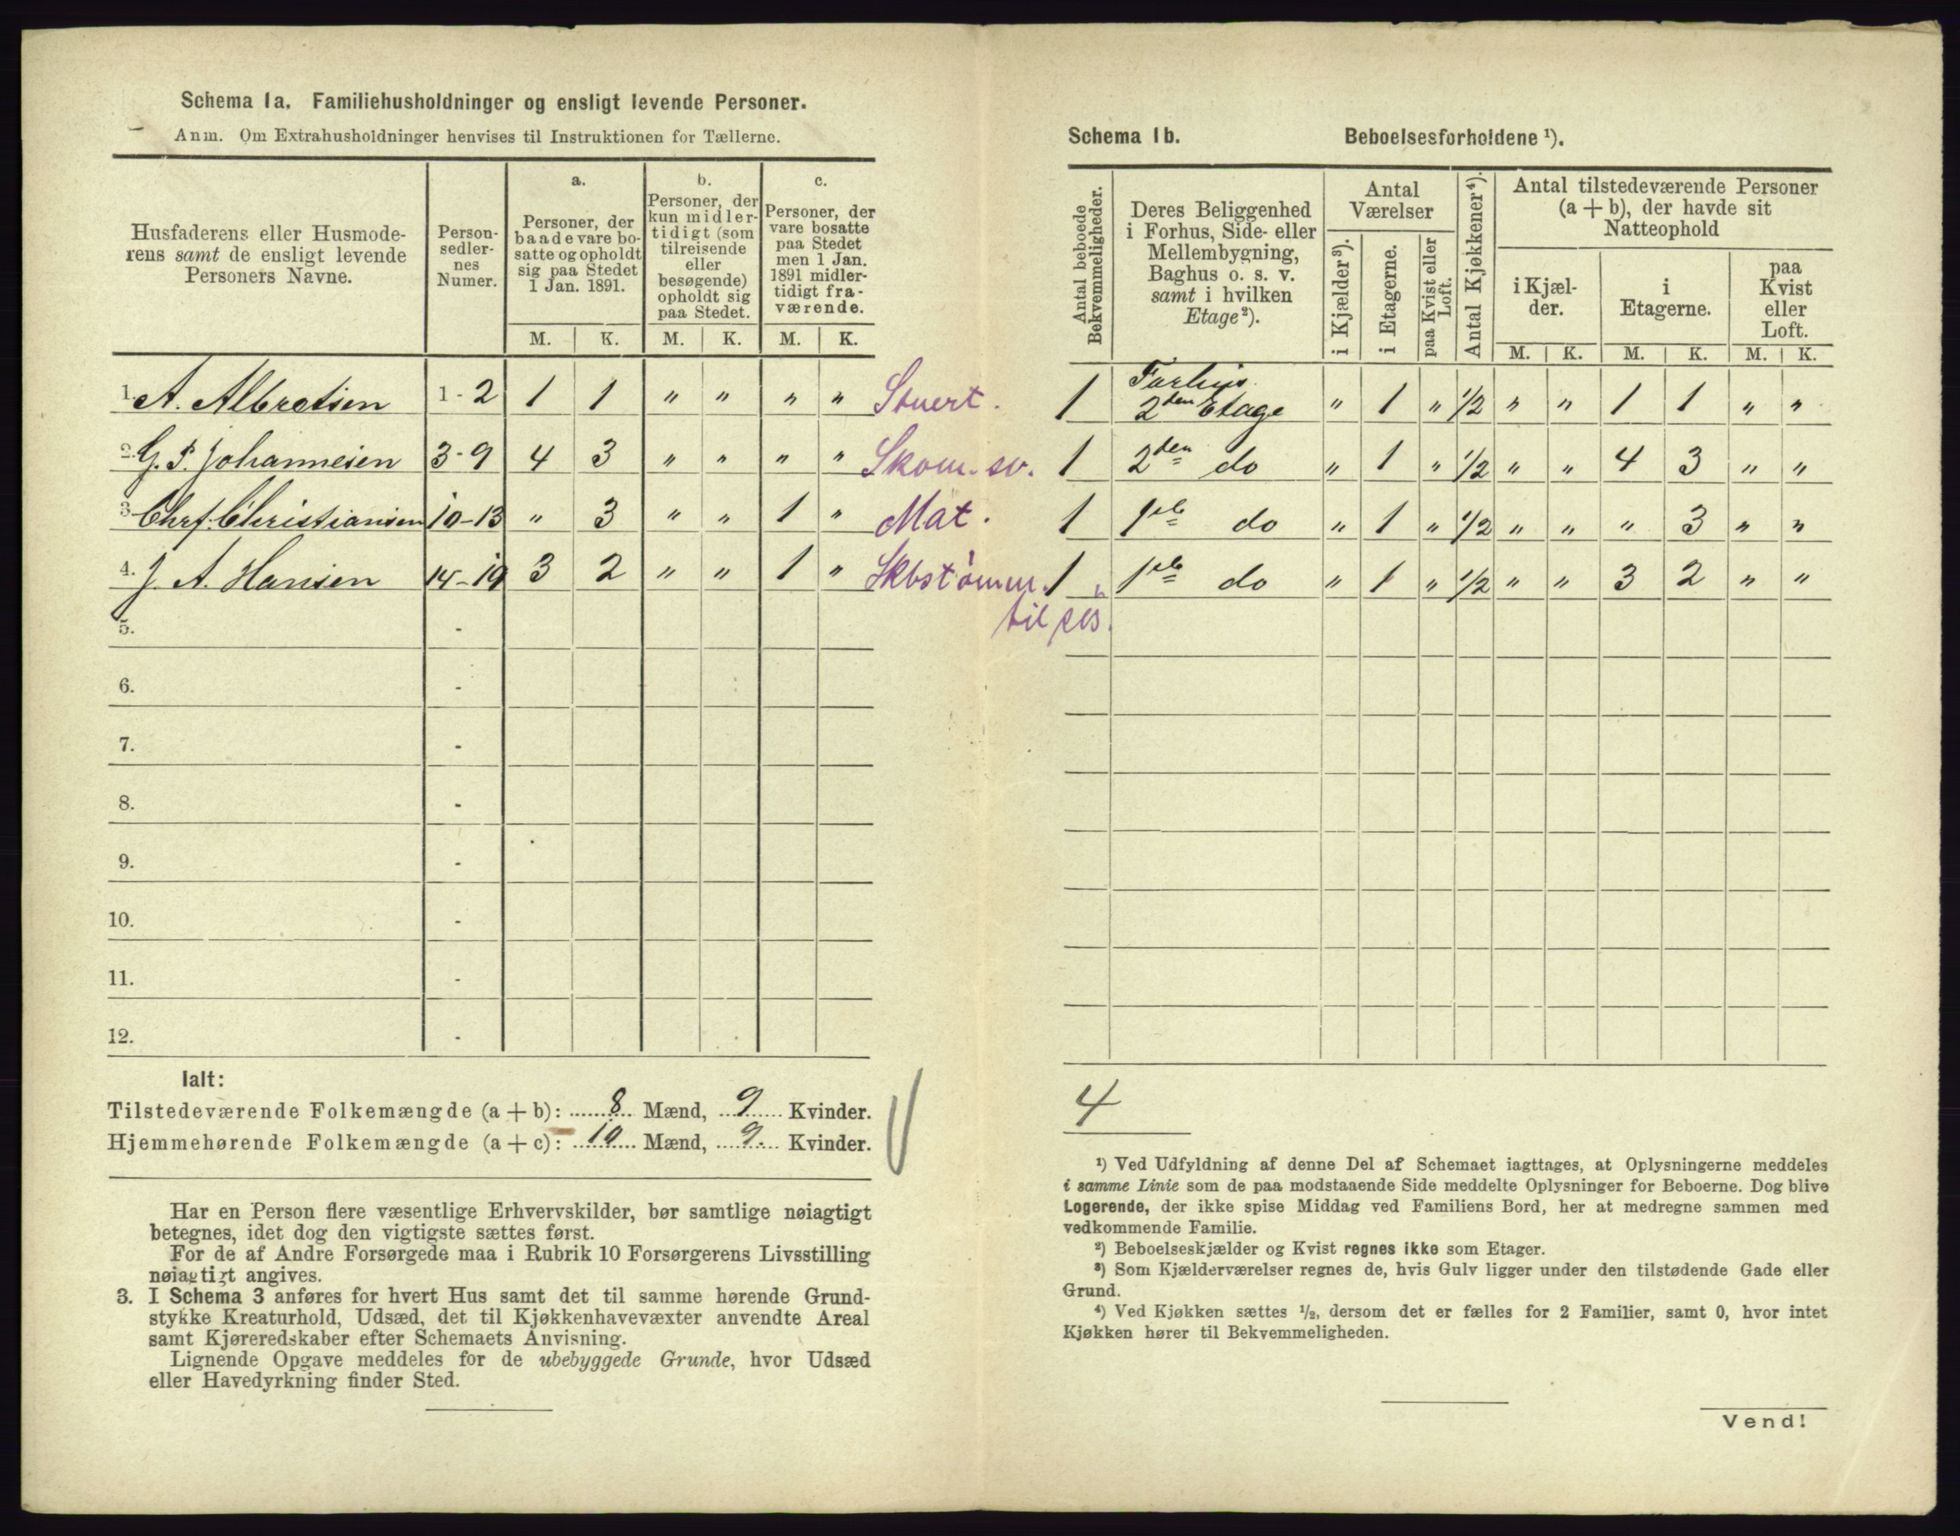 Schema 1a. Familiehusholdninger og ensligt levende Personer.
Anm. Om Extrahusholdninger henvises til Instruktionen for Tællerne.
Husfaderens eller Husmode-
rens samt de ensligt levende
Personers Navne.
Person-
sedler-
nes
Numer.
a.
Personer, der
baade vare bo-
satte og opholdt
sig paa Stedet
1 Jan. 1891.
b.
Personer, der
kun midler-
tidigt (som
tilreisende
eller
besøgende)
opholdt sig
paa Stedet.
c.
Personer, der
vare bosatte
paa Stedet
men 1 Jan.
1891 midler-
tidigt fra-
værende.
M. K. M. K. M. K.
1. A. Albretsen 1-2 1 1 " " " " Stuert.
2. G. P. Johannesen 3-9 4 3 " " " " Skom. sv.
3. Chrf. Christiansen 10-13 " 3 " " 1 " Mat.
4. J. A. Hansen 14-19 3 2 " " 1 " Skbstømm.
til ses.
5. -
6. -
7. -
8. -
9. -
10. -
11. -
12. -
Ialt:
Tilstedeværende Folkemængde (a + b): 8 Mænd, 9 Kvinder.
Hjemmehørende Folkemængde (a + c): 10 Mænd, 9. Kvinder.
Har en Person flere væsentlige Erhvervskilder, bør samtlige nøiagtigt
betegnes, idet dog den vigtigste sættes først.
For de af Andre Forsørgede maa i Rubrik 10 Forsørgerens Livsstilling
nøiagtigt angives.
3. I Schema 3 anføres for hvert Hus samt det til samme hørende Grund-
stykke Kreaturhold, Udsæd, det til Kjøkkenhavevæxter anvendte Areal
samt Kjøreredskaber efter Schemaets Anvisning.
Lignende Opgave meddeles for de ubebyggede Grunde, hvor Udsæd
eller Havedyrkning finder Sted.
Schema 1b. Beboelsesforholdene ¹).
Antal beboede
Bekvemmeligheder.
Deres Beliggenhed
i Forhus, Side- eller
Mellembygning,
Baghus o. s. v.
samt i hvilken
Etage²).
Antal
Værelser
i Kjælder³).
i Etagerne.
paa Kvist eller
Loft.
Antal Kjøkkener⁴).
Antal tilstedeværende Personer
(a + b), der havde sit
Natteophold
i Kjæl-
der.
i
Etagerne.
paa
Kvist
eller
Loft.
M. K. M. K. M. K.
1 Forhus.
2den Etage " 1 " 1/2 " " 1 1 " "
1 2den do " 1 " 1/2 " " 4 3 " "
1 1ste do " 1 " 1/2 " " " 3 " "
1 1ste do " 1 " 1/2 " " 3 2 " "
4
¹) Ved Udfyldning af denne Del af Schemaet iagttages, at Oplysningerne meddeles
i samme Linie som de paa modstaaende Side meddelte Oplysninger for Beboerne. Dog blive
Logerende, der ikke spise Middag ved Familiens Bord, her at medregne sammen med
vedkommende Familie.
²) Beboelseskjælder og Kvist regnes ikke som Etager.
³) Som Kjælderværelser regnes de, hvis Gulv ligger under den tilstødende Gade eller
Grund.
⁴) Ved Kjøkken sættes ½, dersom det er fælles for 2 Familier, samt 0, hvor intet
Kjøkken hører til Bekvemmeligheden.
Vend!